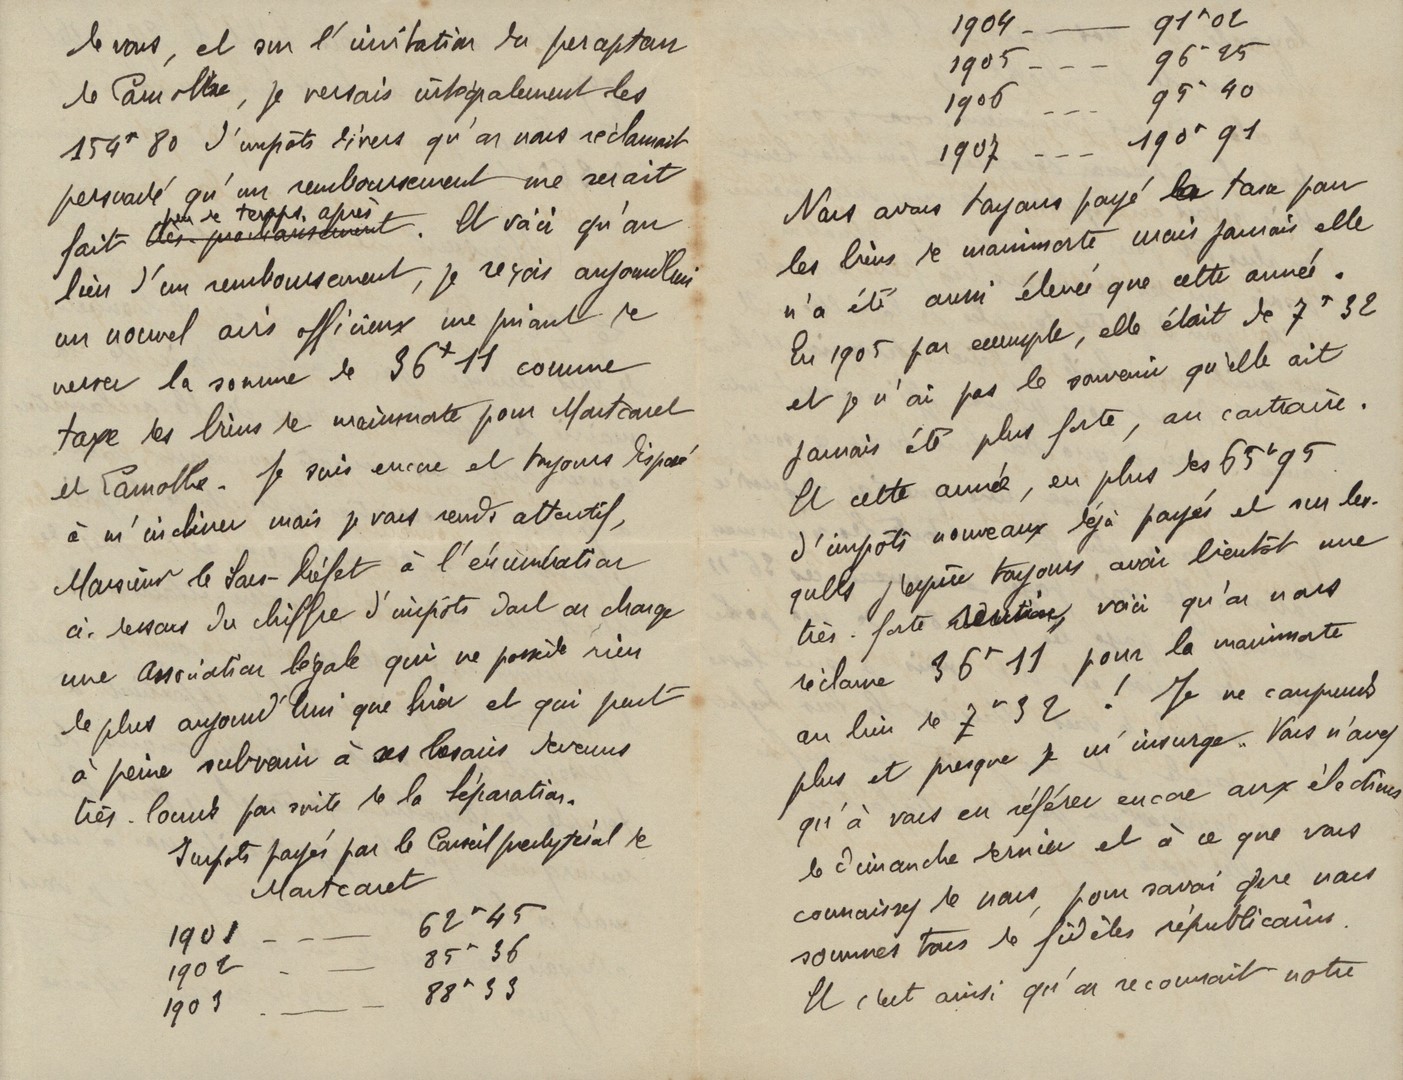 de vous, et sur l'invitation du percepteur
de Lamothe, je versais intégralement les
154f 80 d'impôts divers qu'on nous réclamait
persuadé qu'un remboursement me serait
peu de temps après
fait très prochainement. Et voici qu'au
lieu d'un remboursement, je reçois aujourd'hui
un nouvel avis officieux me priant de
verser la somme de 36f 11 comme
taxe des biens de mainmorte pour Montcaret
et Lamothe. Je suis encore et toujours disposé
à m'incliner mais je vous rends attentif,
Monsieur le Sous-Préfet à l'énumération
ci-dessous du chiffre d'impôts dont on charge
une association légale qui ne possède rien
de plus aujourd'hui que hier et qui peut
à peine subvenir à ses besoins devenus
très-lourds par suite de la Séparation.
Impôts payés par le Conseil presbytéral de
Montcaret
1901 - - — 62f 45
1902 - — 85f 36
1903 - — - 88f 33
1904 - — 91f 02
1905 - - - 96f 25
1906 - - - 95f 40
1907 - - - 190f 91
Nous avons toujours payé la taxe pour
les biens de mainmorte mais jamais elle
n'a été aussi élevée que cette année.
En 1905 par exemple, elle était de 7f 32
et je n'ai pas le souvenir qu'elle ait
jamais été plus forte, au contraire.
Et cette année, en plus des 65f 95
d'impôts nouveaux déjà payés et sur les-
quels j'espère toujours avoir bientôt une
très-forte réduction, voici qu'on nous
réclame 36f 11 pour la mainmorte
au lieu de 7f 32 ! Je ne comprends
plus et presque je m'insurge. Vous n'avez
qu'à vous en référer encore aux élections
de dimanche dernier et à ce que vous
connaissez de nous, pour savoir que nous
sommes tous de fidèles républicains.
Et c'est ainsi qu'on reconnaît notre